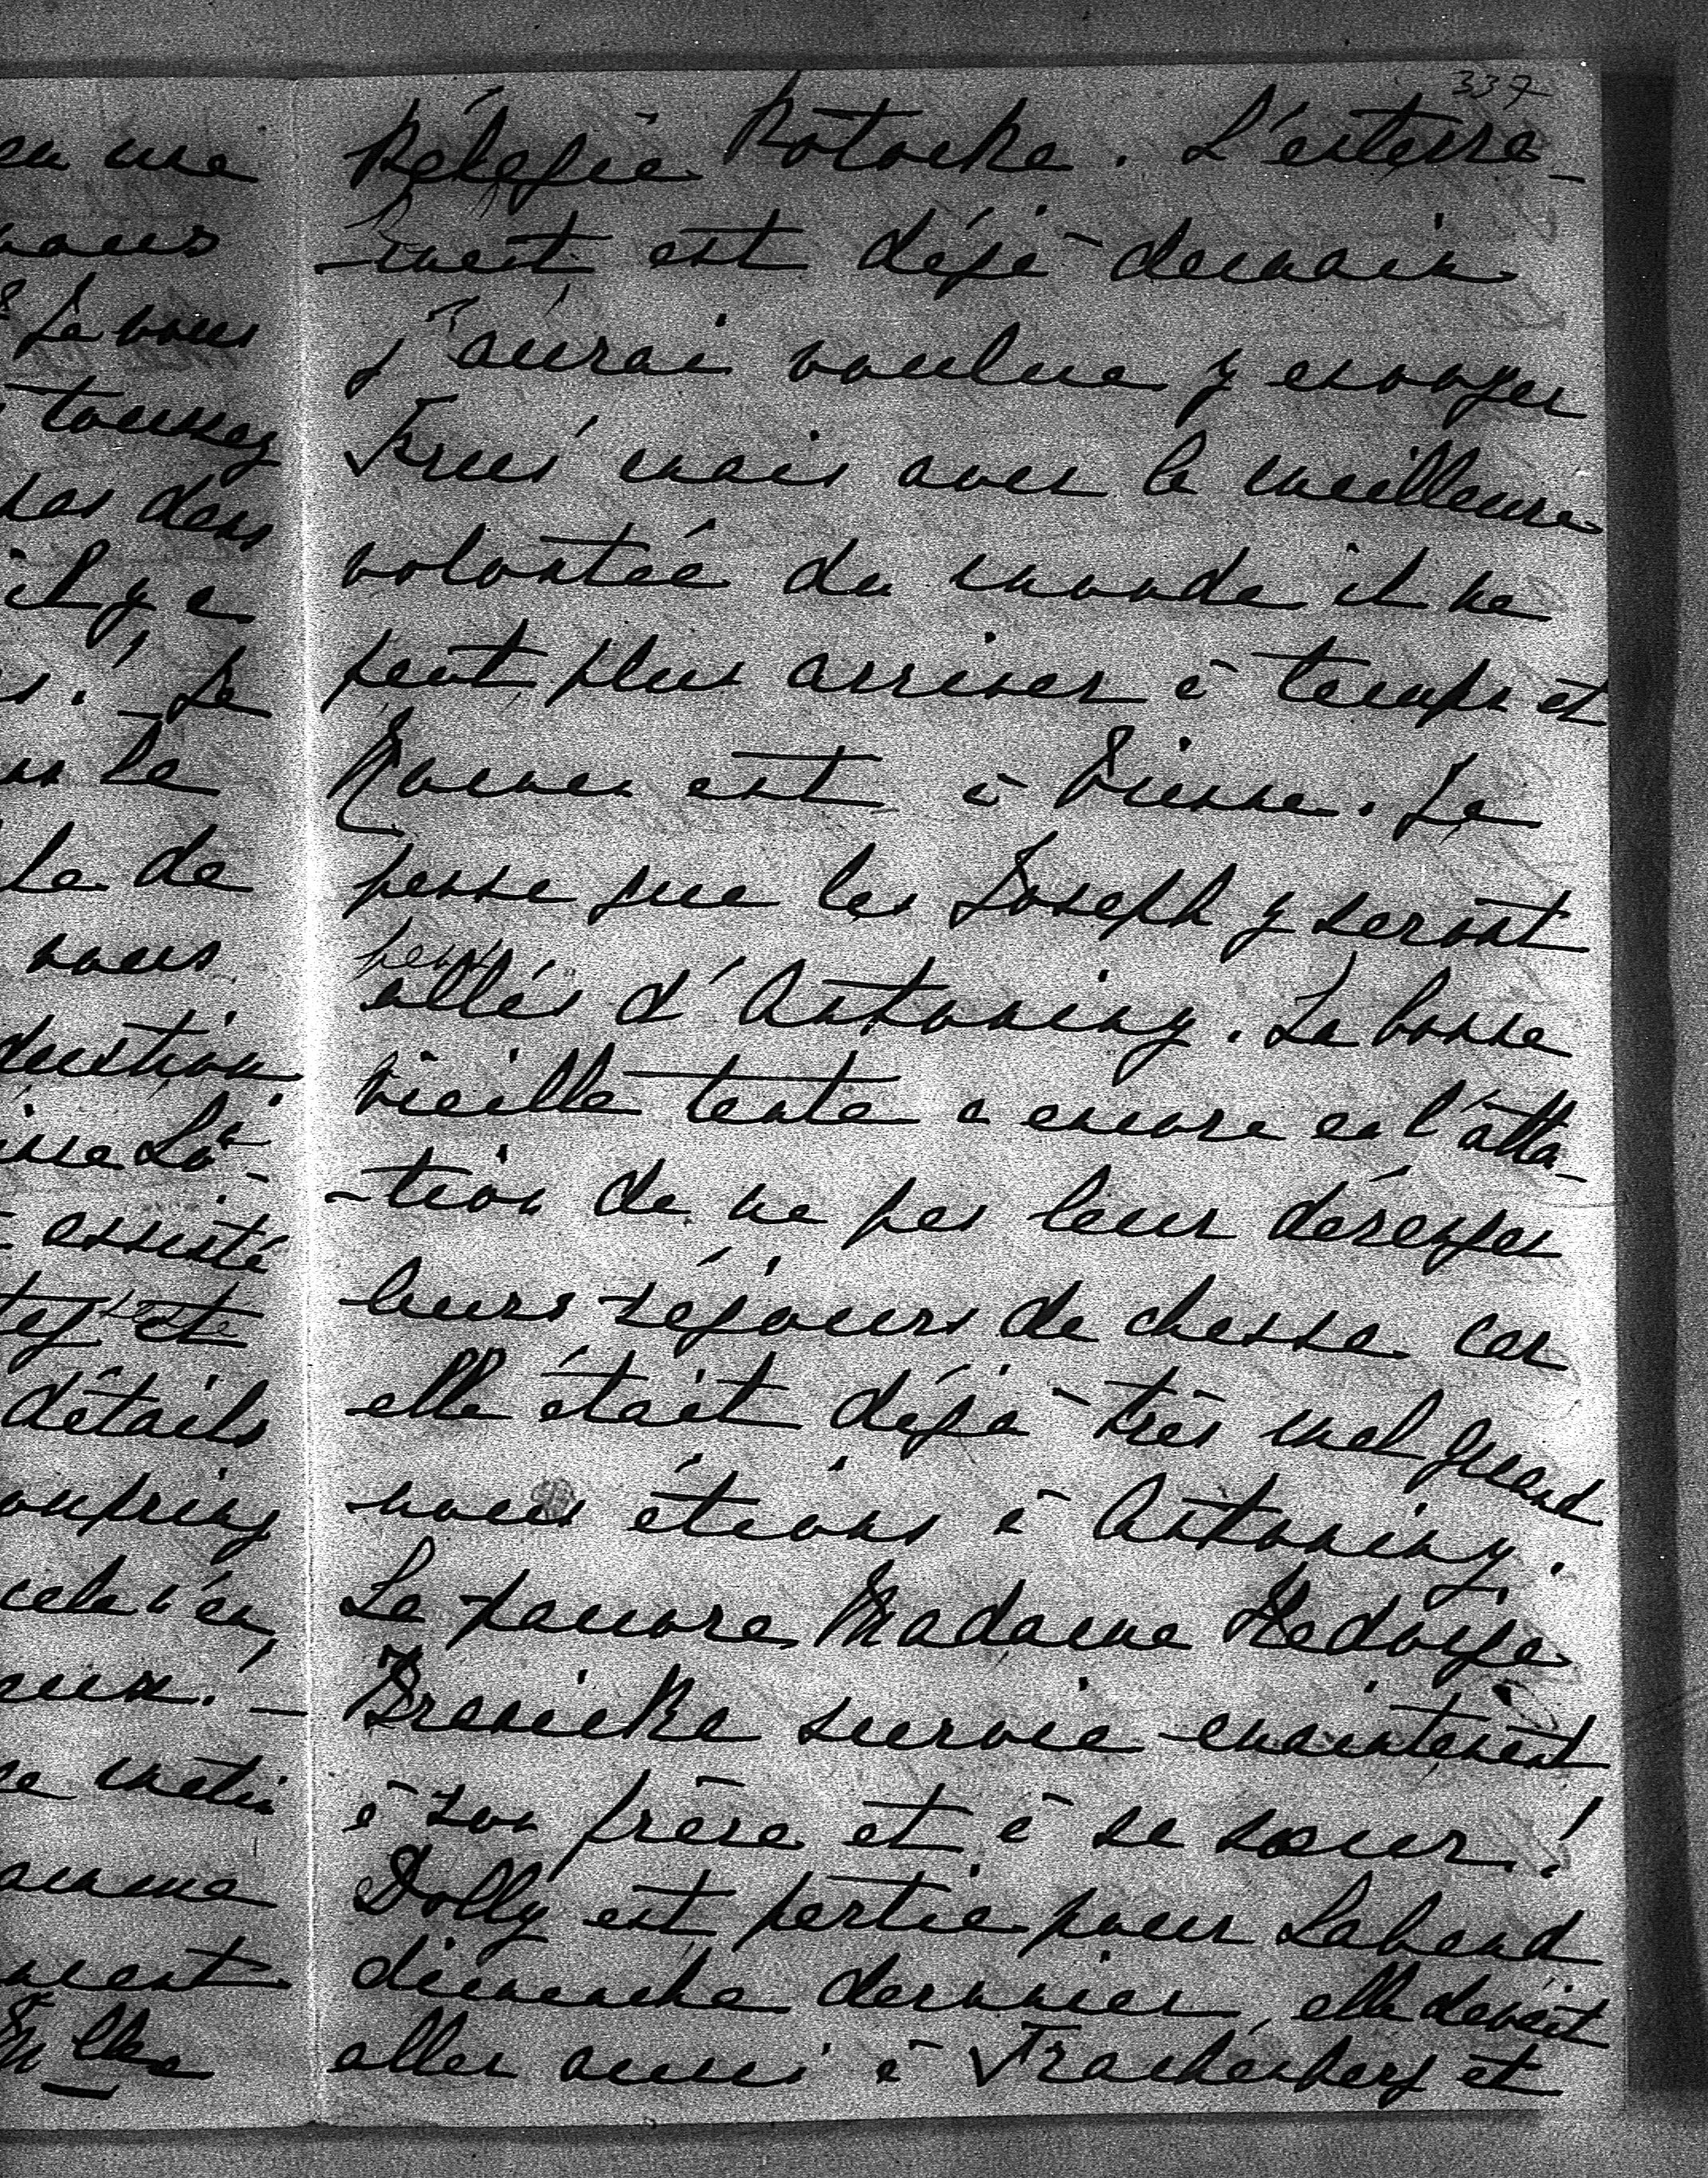 337
Pélagie Potocka. L'enterre-
-ment est déjà demain
j'aurai voulue y envoyer
mais avec la meilleure
volontée du monde il ne
peut plus arriver à temps et
est à Vienne. Je
pense que les Joseph y seront
allés d'Antoniny. La bonne
vieille tante a encore eu l'atta-
-tion de ne pas leur déranger
leurs séjours de chasse car
elle était déjà très mal quand
nous étions à Antoniny.
La pauvre Madame Hedwige
Branicka survie maintenant
à son frère et à sa sœur!
Dolly est partie pour Laband
dimanche dernier, elle devait
aller aussi à Trachenberg et
en me
nous
Je vous
toussez
pas dans
il y a
Je
la
de
nous
assisté
et
détails
matin